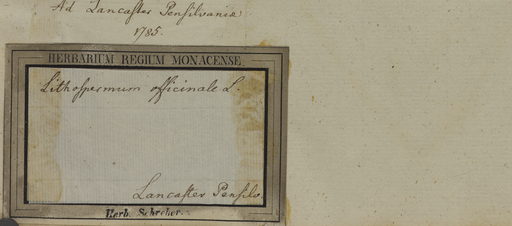 Ad Lancaster Pensilvaniæ
1785.
HERBARIUM REGIUM MONACENSE
Lithospermum officinale L.
Lancaster Pensilv
Herb. Schreber.